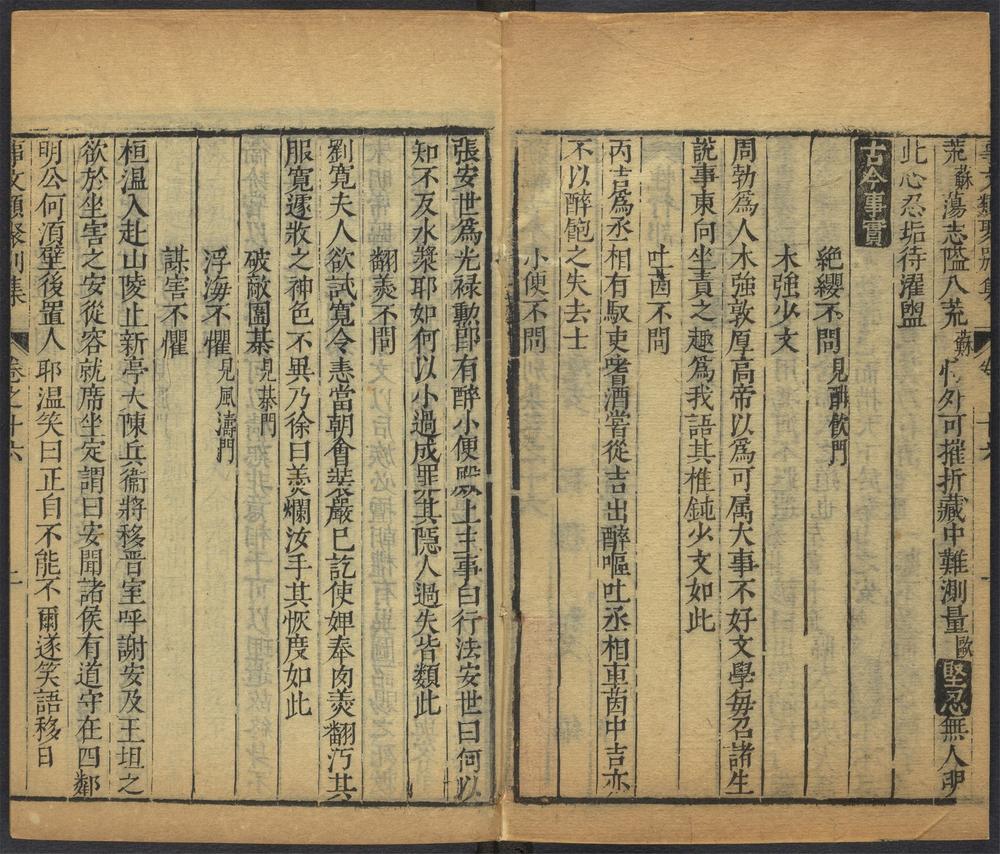 事文類聚別集 卷 十六 一
荒蘇蕩志隘八荒蘇 外可摧折藏中難測量歐堅忍無人明
此心忍垢待濯盥
古今事實
絕纓不問見酣飲門
木強少文
周勃爲人木強敦厚高帝以爲可属大事不好文學每召諸生
說事東向坐責之趣爲我語其椎鈍少文如此
吐茵不問
丙吉爲丞相有馭吏嗜酒嘗從吉出醉嘔吐丞相車茵中吉亦
不以醉飽之失去士
小便不問
張安世爲光禄勳郎有醉小便殿上主事白行法安世曰何以
知不反水漿耶如何以小過成罪其隱人過失皆類此
翻羹不問
劉寬夫人欲試寬令恚當朝會裝嚴已訖使婢奉肉羹翻汚其
服寬遽收之神色不異乃徐曰羹爛汝手其恢度如此
破敵圍棊見棊門
浮海不懼見風濤門
謀害不懼
桓温入赴山陵止新亭大陳兵衞將移晋室呼謝安及王坦之
欲於坐害之安從容就席坐定謂曰安聞諸侯有道守在四鄰
明公何湏壁後置人耶温笑曰正自不能不爾遂笑語移日
事文類聚別集 卷之十六 二